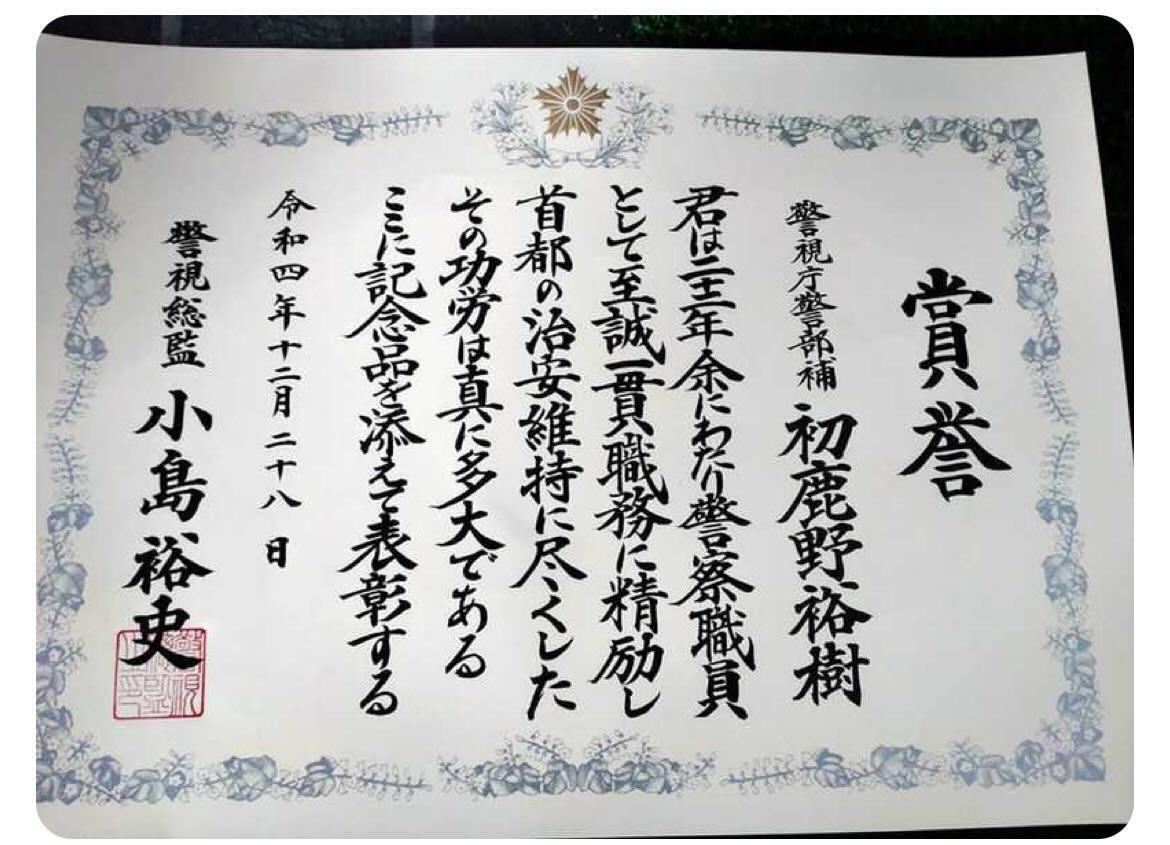 賞誉
警視庁警部補 初鹿野裕樹
君は二十二年余にわたり警察職員
として至誠一貫職務に精励し
首都の治安維持に尽くした
その功労は真に多大である
ここに記念品を添えて表彰する
令和四年十二月二十八日
警視総監 小島裕史